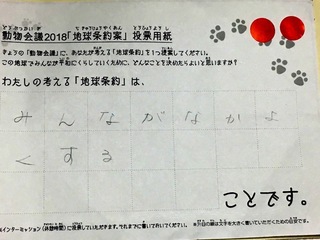 動物会議2018「地球条約案」投票用紙
きょうの「動物会議」に、あなたが考える「地球条約」を1つ提案してください。
この地球でみんなが平和にくらしていくために、どんなことを決めたらよいと思いますか?
わたしの考える「地球条約」は、
みんながなかよ
くする
ことです。
インターミッション(休憩時間)に投票していただきます。それまでに書いておいてください。